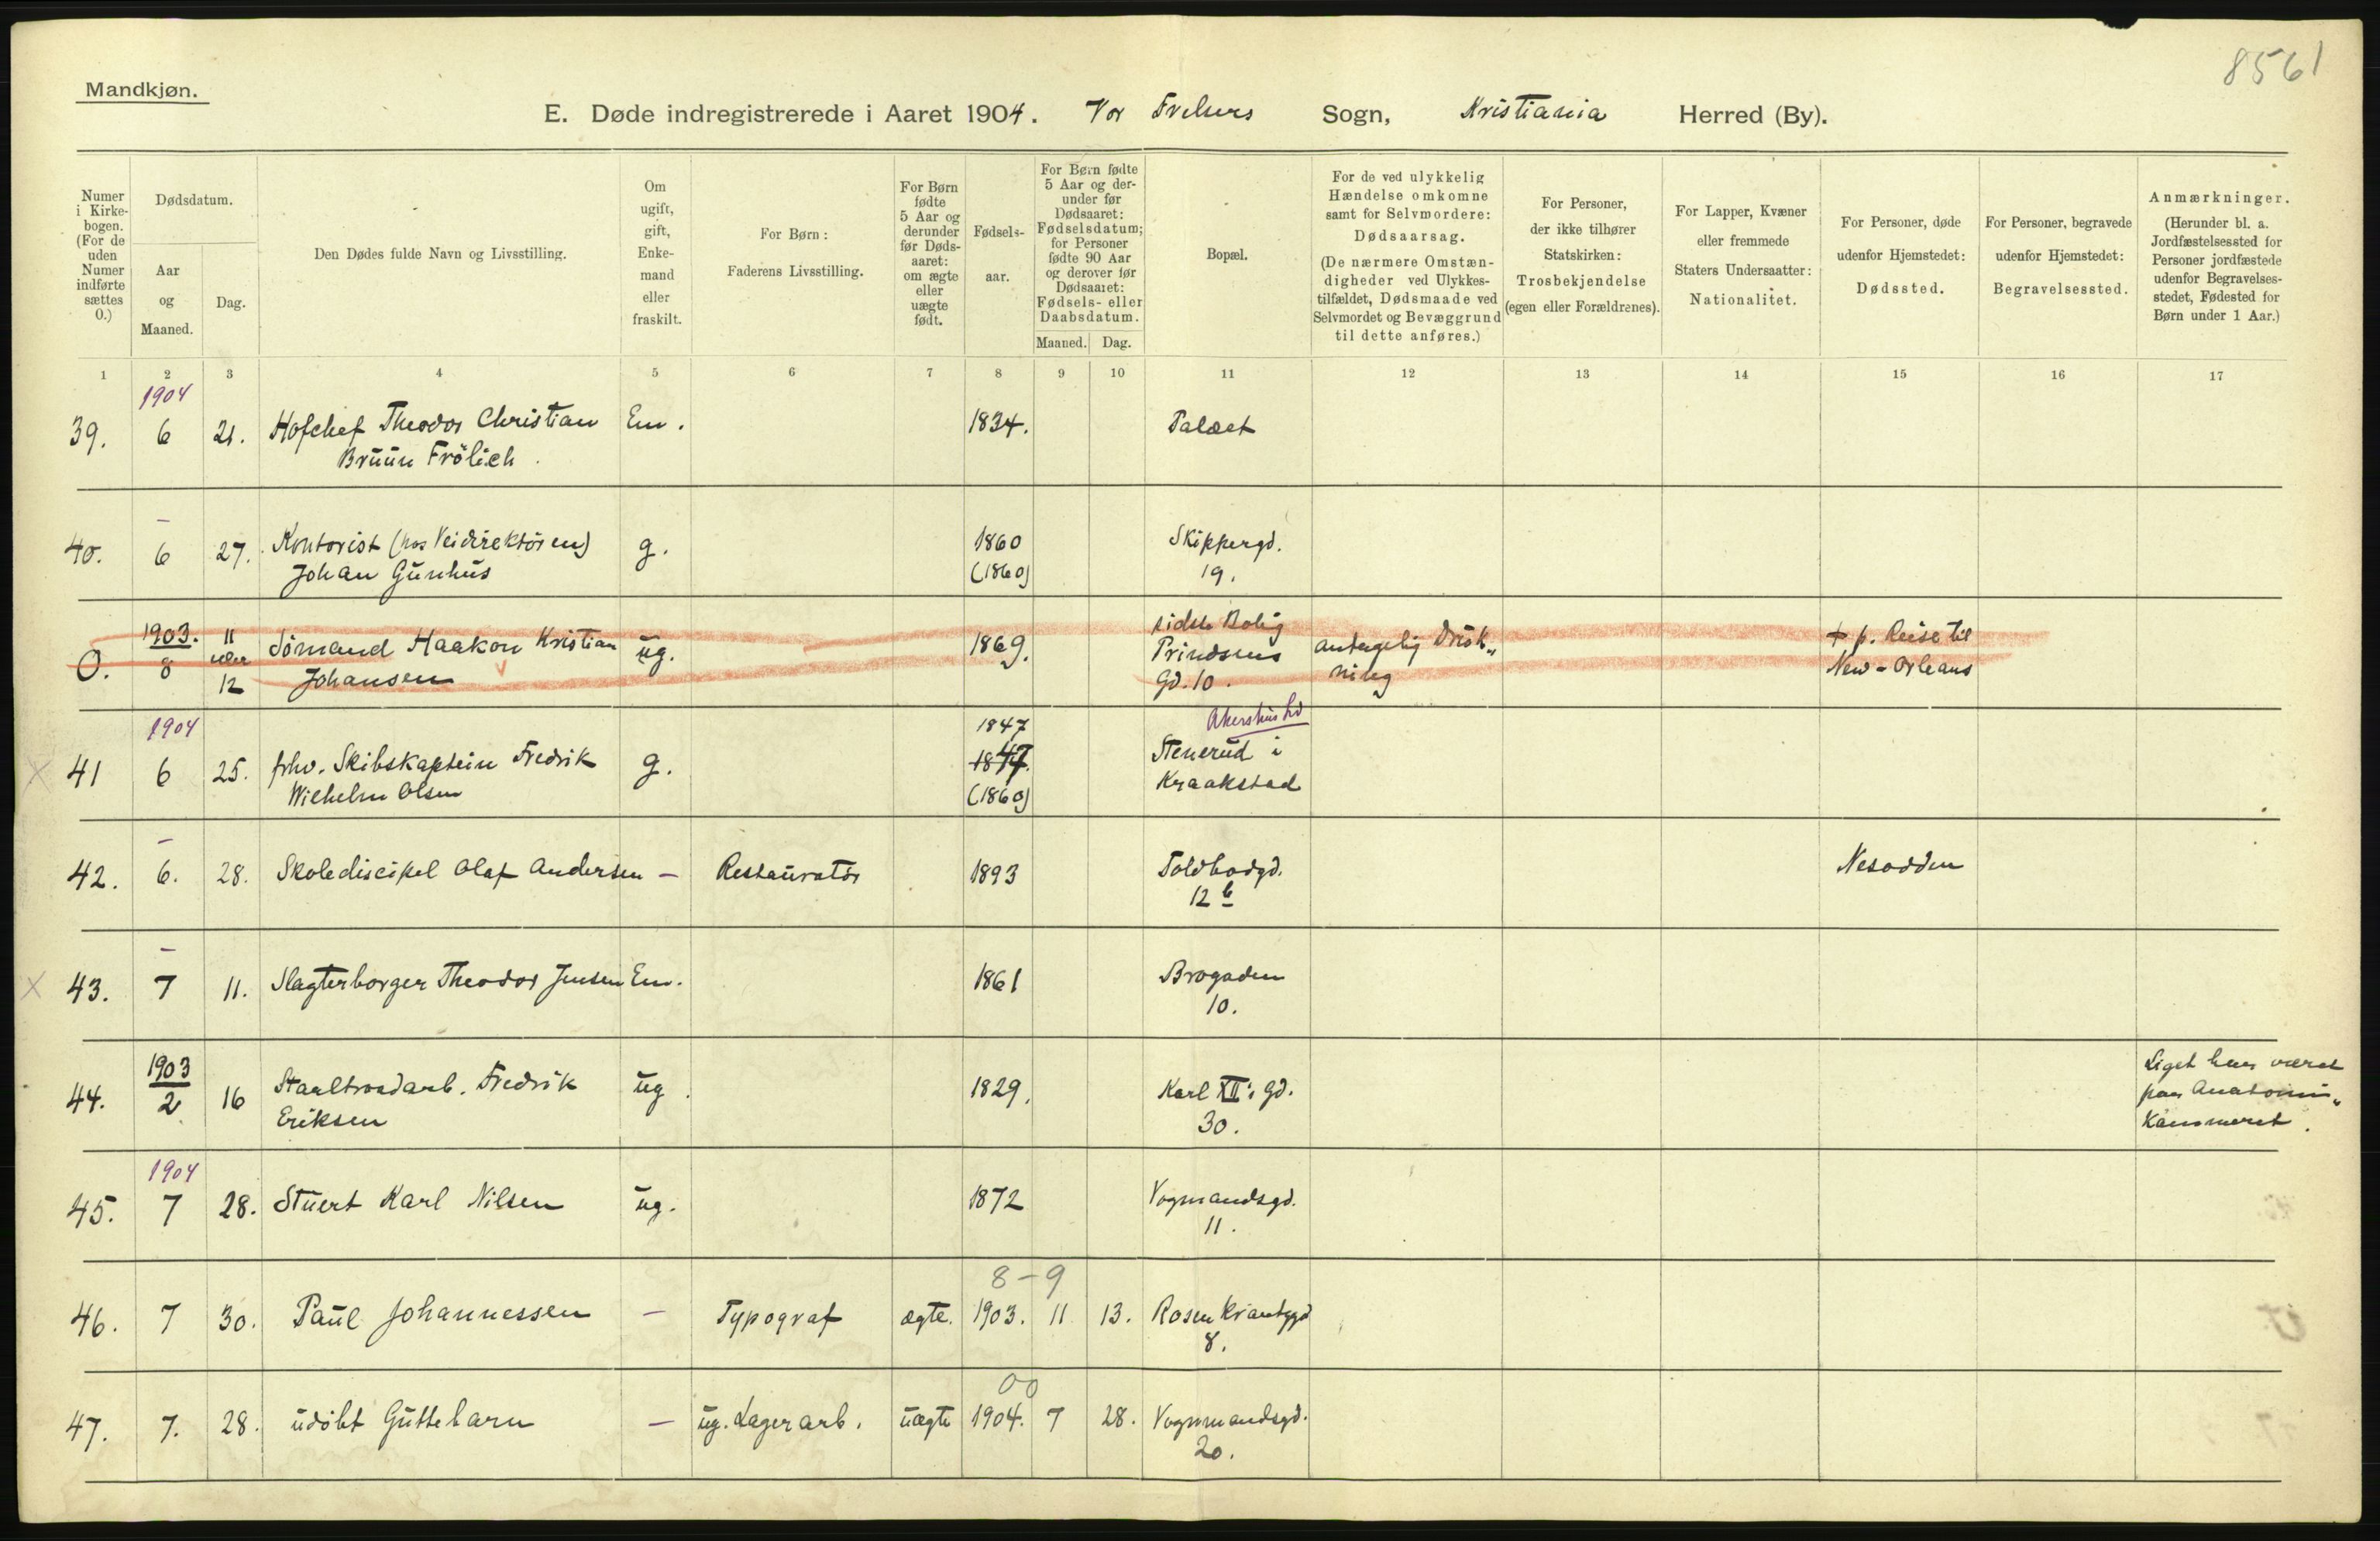 8561
Mandkjøn.
E. Døde indregistrerede i Aaret 1904. Vor Frelsers Sogn, Kristiania Herred (By).
Numer i Kirkebogen. (For de uden Numer indførte sættes 0.)
Dødsdatum.
Aar og Maaned.
Dag.
Den Dødes fulde Navn og Livsstilling.
Om ugift, gift, Enkemand eller fraskilt.
For Børn: Faderens Livsstilling.
For Børn fødte 5 Aar og derunder før Dødsaaret: om ægte eller uægte født.
Fødselsaar.
For Børn fødte 5 Aar og derunder før Dødsaaret: Fødselsdatum; for Personer fødte 90 Aar og derover før Dødsaaret: Fødsels- eller Daabsdatum.
Maaned. Dag.
Bopæl.
For de ved ulykkelig Hændelse omkomne samt for Selvmordere: Dødsaarsag. (De nærmere Omstændigheder ved Ulykkestilfældet, Dødsmaade ved Selvmordet og Bevæggrund til dette anføres.)
For Personer, der ikke tilhører Statskirken: Trosbekjendelse (egen eller Forældrenes).
For Lapper, Kvæner eller fremmede Staters Undersaatter: Nationalitet.
For Personer, døde udenfor Hjemstedet: Dødssted.
For Personer, begravede udenfor Hjemstedet: Begravelsessted.
Anmærkninger. (Herunder bl. a. Jordfæstelsessted for Personer jordfæstede udenfor Begravelsesstedet, Fødested for Børn under 1 Aar.)
1 2 3 4 5 6 7 8 9 10 11 12 13 14 15 16 17
1904
39. 6 21. Hofchef Theodor Christian Em. 1834. Palæet
Bruun Frölich.
–
40. 6 27. Kontorist (hos Veidirektören) g. 1860 Skippergd.
Johan Gunhus (1860) 19.
1903. 11 sidste Bolig
0. 8 eller Sömand Haakon Kristian ug. 1869. Prindsens antagelig Drukning + p. Reise til
12 Johansen Gd. 10. New-Orleans
1904 1847 Akershus
x 41 6 25. fhv. Skibskaptein Fredrik g. 1847. Stenerud i
Wilhelm Olsen (1860) Kraakstad
–
42. 6. 28. Skolediscipel Olaf Andersen – Restauratör 1893 Toldbodgd. Nesodden
12 b
–
x 43. 7 11. Slagterborger Theodor Jensen Em. 1861 Brogaden
10.
1903 Liget har været
44. 2 16 Staaltraadarb. Fredrik ug. 1829. Karl XII's gd. paa Anatomi-
Eriksen 30. Kammeret.
1904
45. 7 28. Stuert Karl Nilsen ug. 1872 Vognmandsgd.
11.
8-9
46. 7 30. Paul Johannessen – Typograf ægte. 1903. 11 13. Rosenkrantzgd
8.
00
47. 7. 28. udöbt Guttebarn – ug. Lagerarb. uægte 1904. 7 28. Vognmandsgd.
20.